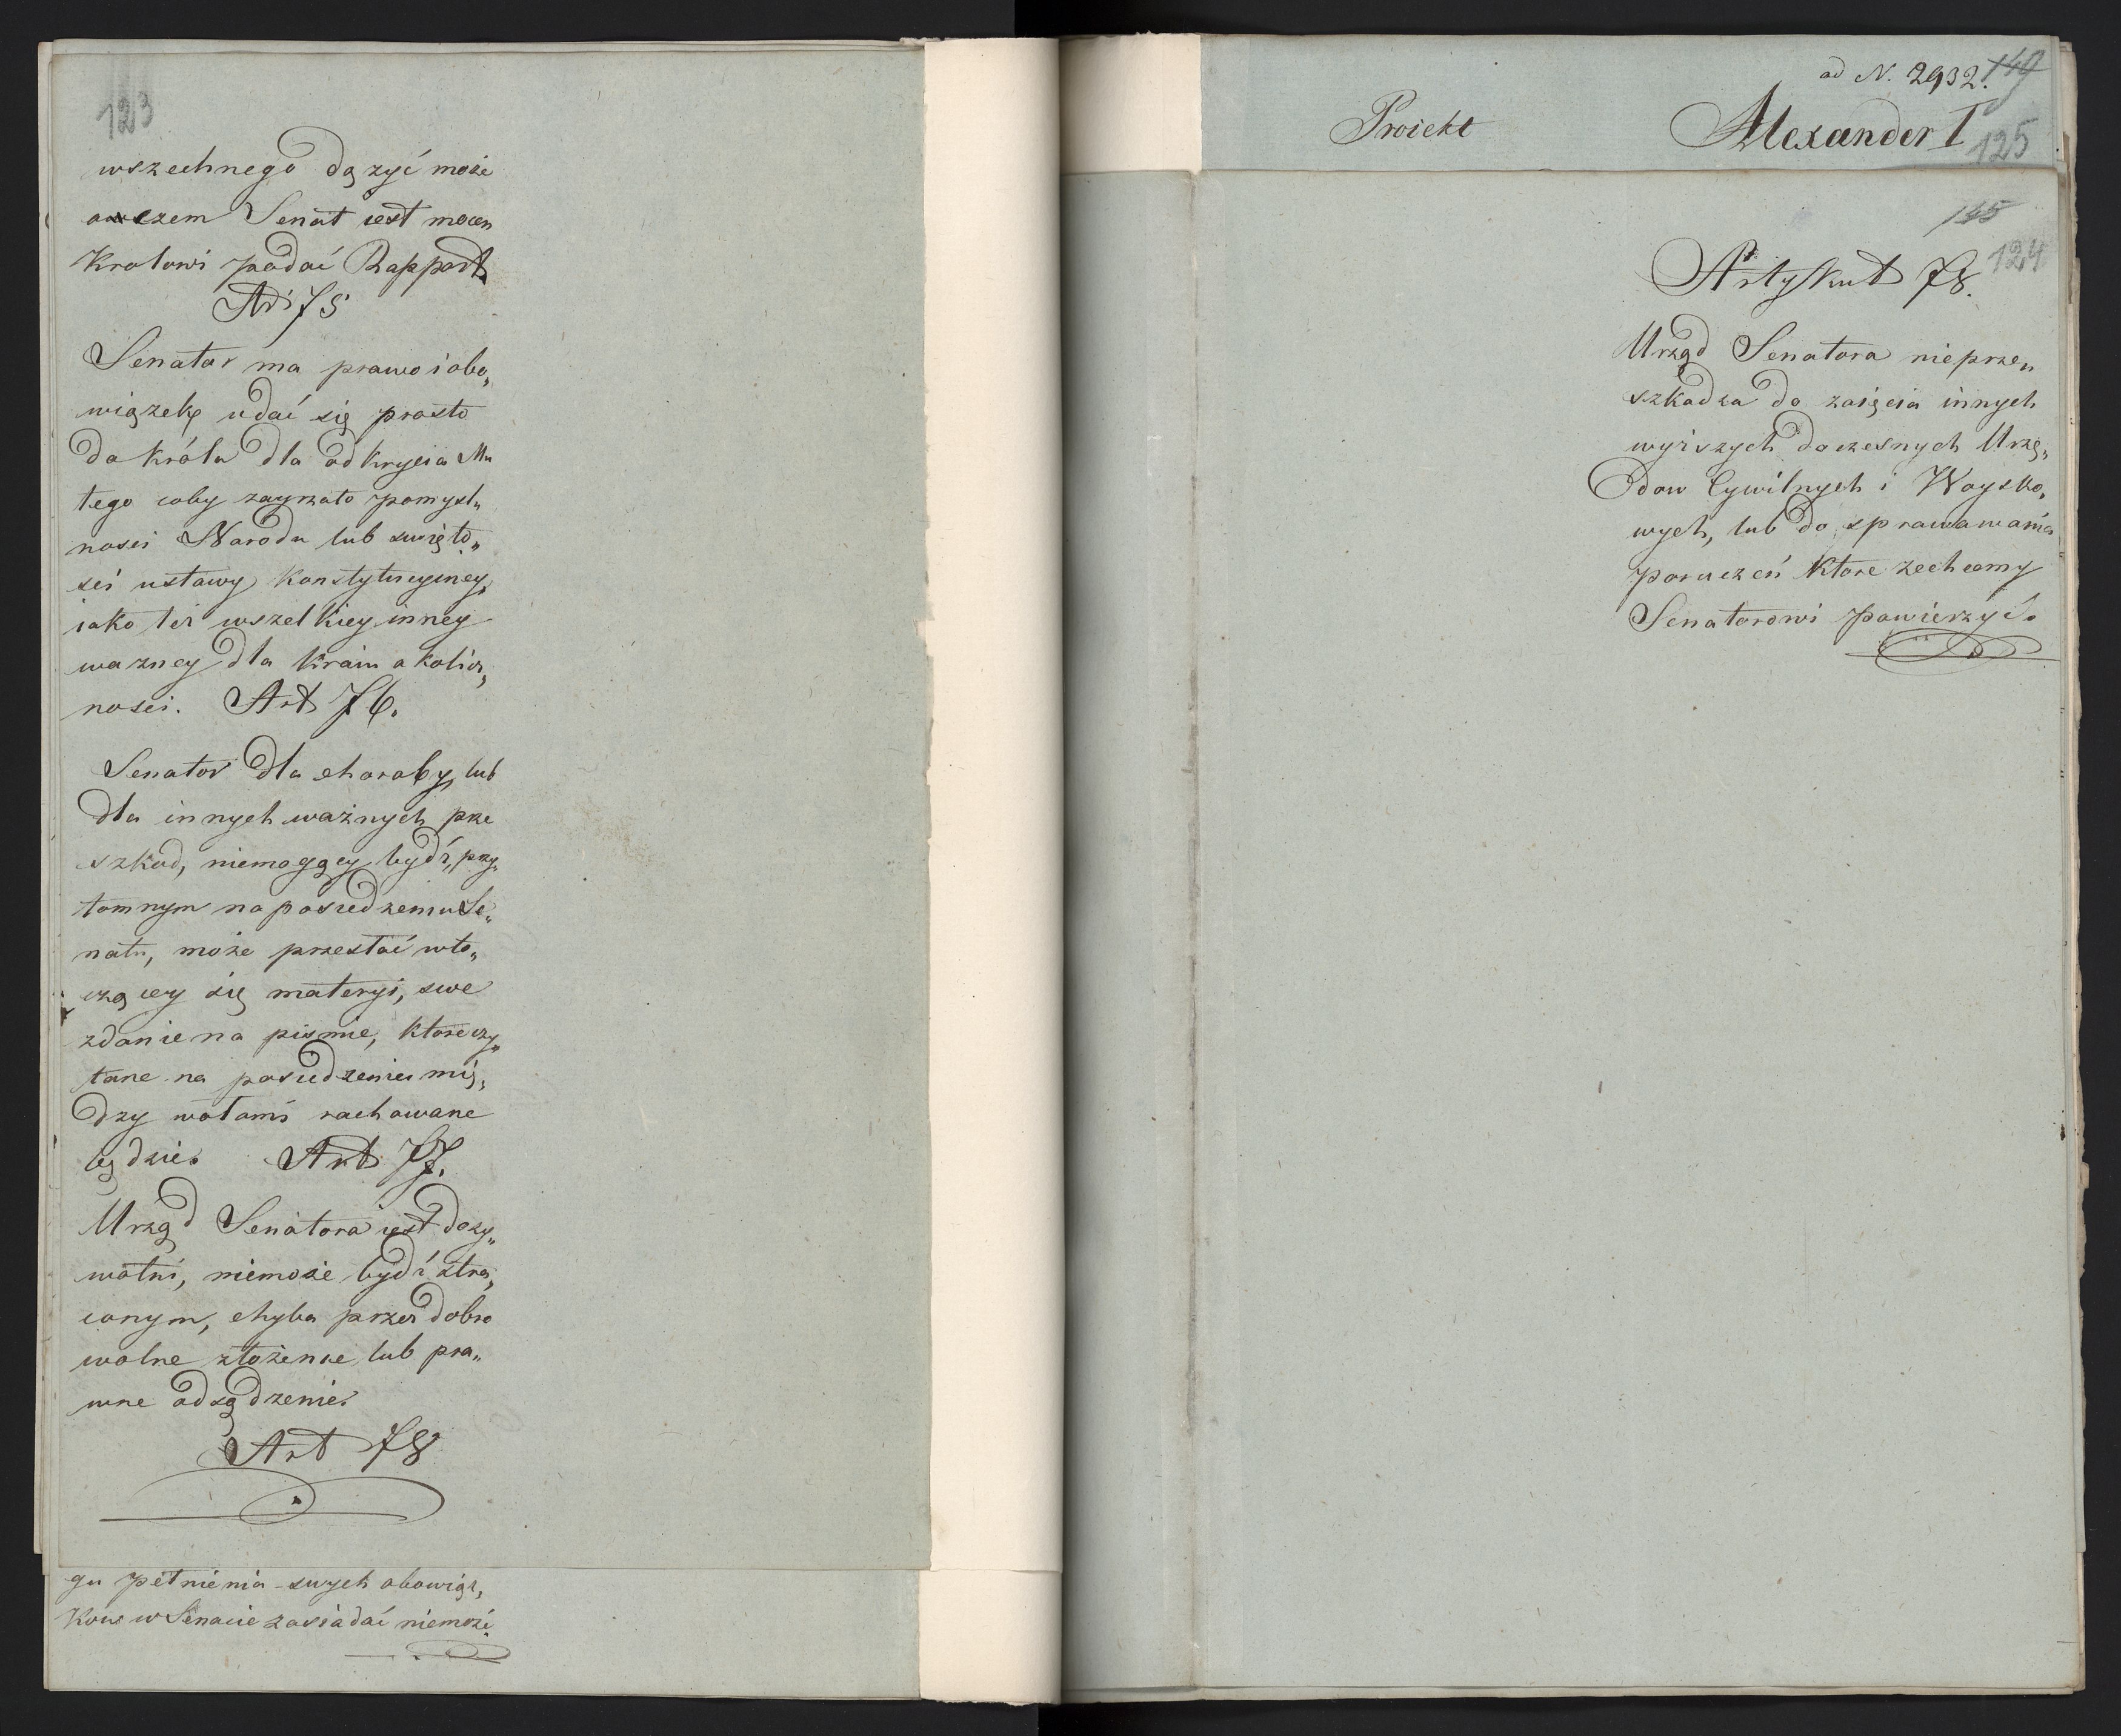 123
wszechnego dążyć może
o czem Senat iest mocen
Krolowi podać Rapport.
Art 75
Senator ma prawo i obo„
wiązek udać się prosto
do Króla dla odkrycia Mu
tego coby zagrzało pomysl„
nosci Narodu lub swięto„
sci ustawy Konstytucyiney,
iako też wszelkiey inney
wazney dla Kraiu okolicz„
nosci. Art 76.
Senator dla choroby, lub
dla innych ważnych prze
szkod, niemogący bydź przy„
tomnym na posiedzeniu Se„
natu, może przesłać wto„
czącey się materyi, swe
zdanie na pismie, ktore czy„
tane na posiedzeniu mię„
dzy wotami rachowane
będzie. Art 77.
Urząd Senatora iest dozy„
wotni, niemoże bydź stra„
conym, chyba przez dobro
wolne złożenie lub pra„
wne odsądzenie.
Art 78
gu pełnienia swych obowiąz„
Kow w Senacie zasiadać niemoże.
ad N. 2932. 149
Proiekt Alexander I
125
145
124
Artykuł 78.
Urząd Senatora nieprze„
szkadza do zaięcia innych
wyższych doczesnych Urzę„
dow Cywilnych i Woysko„
wych, lub do sprawowania
poruczeń ktore zechcemy
Senatorowi powierzyć.